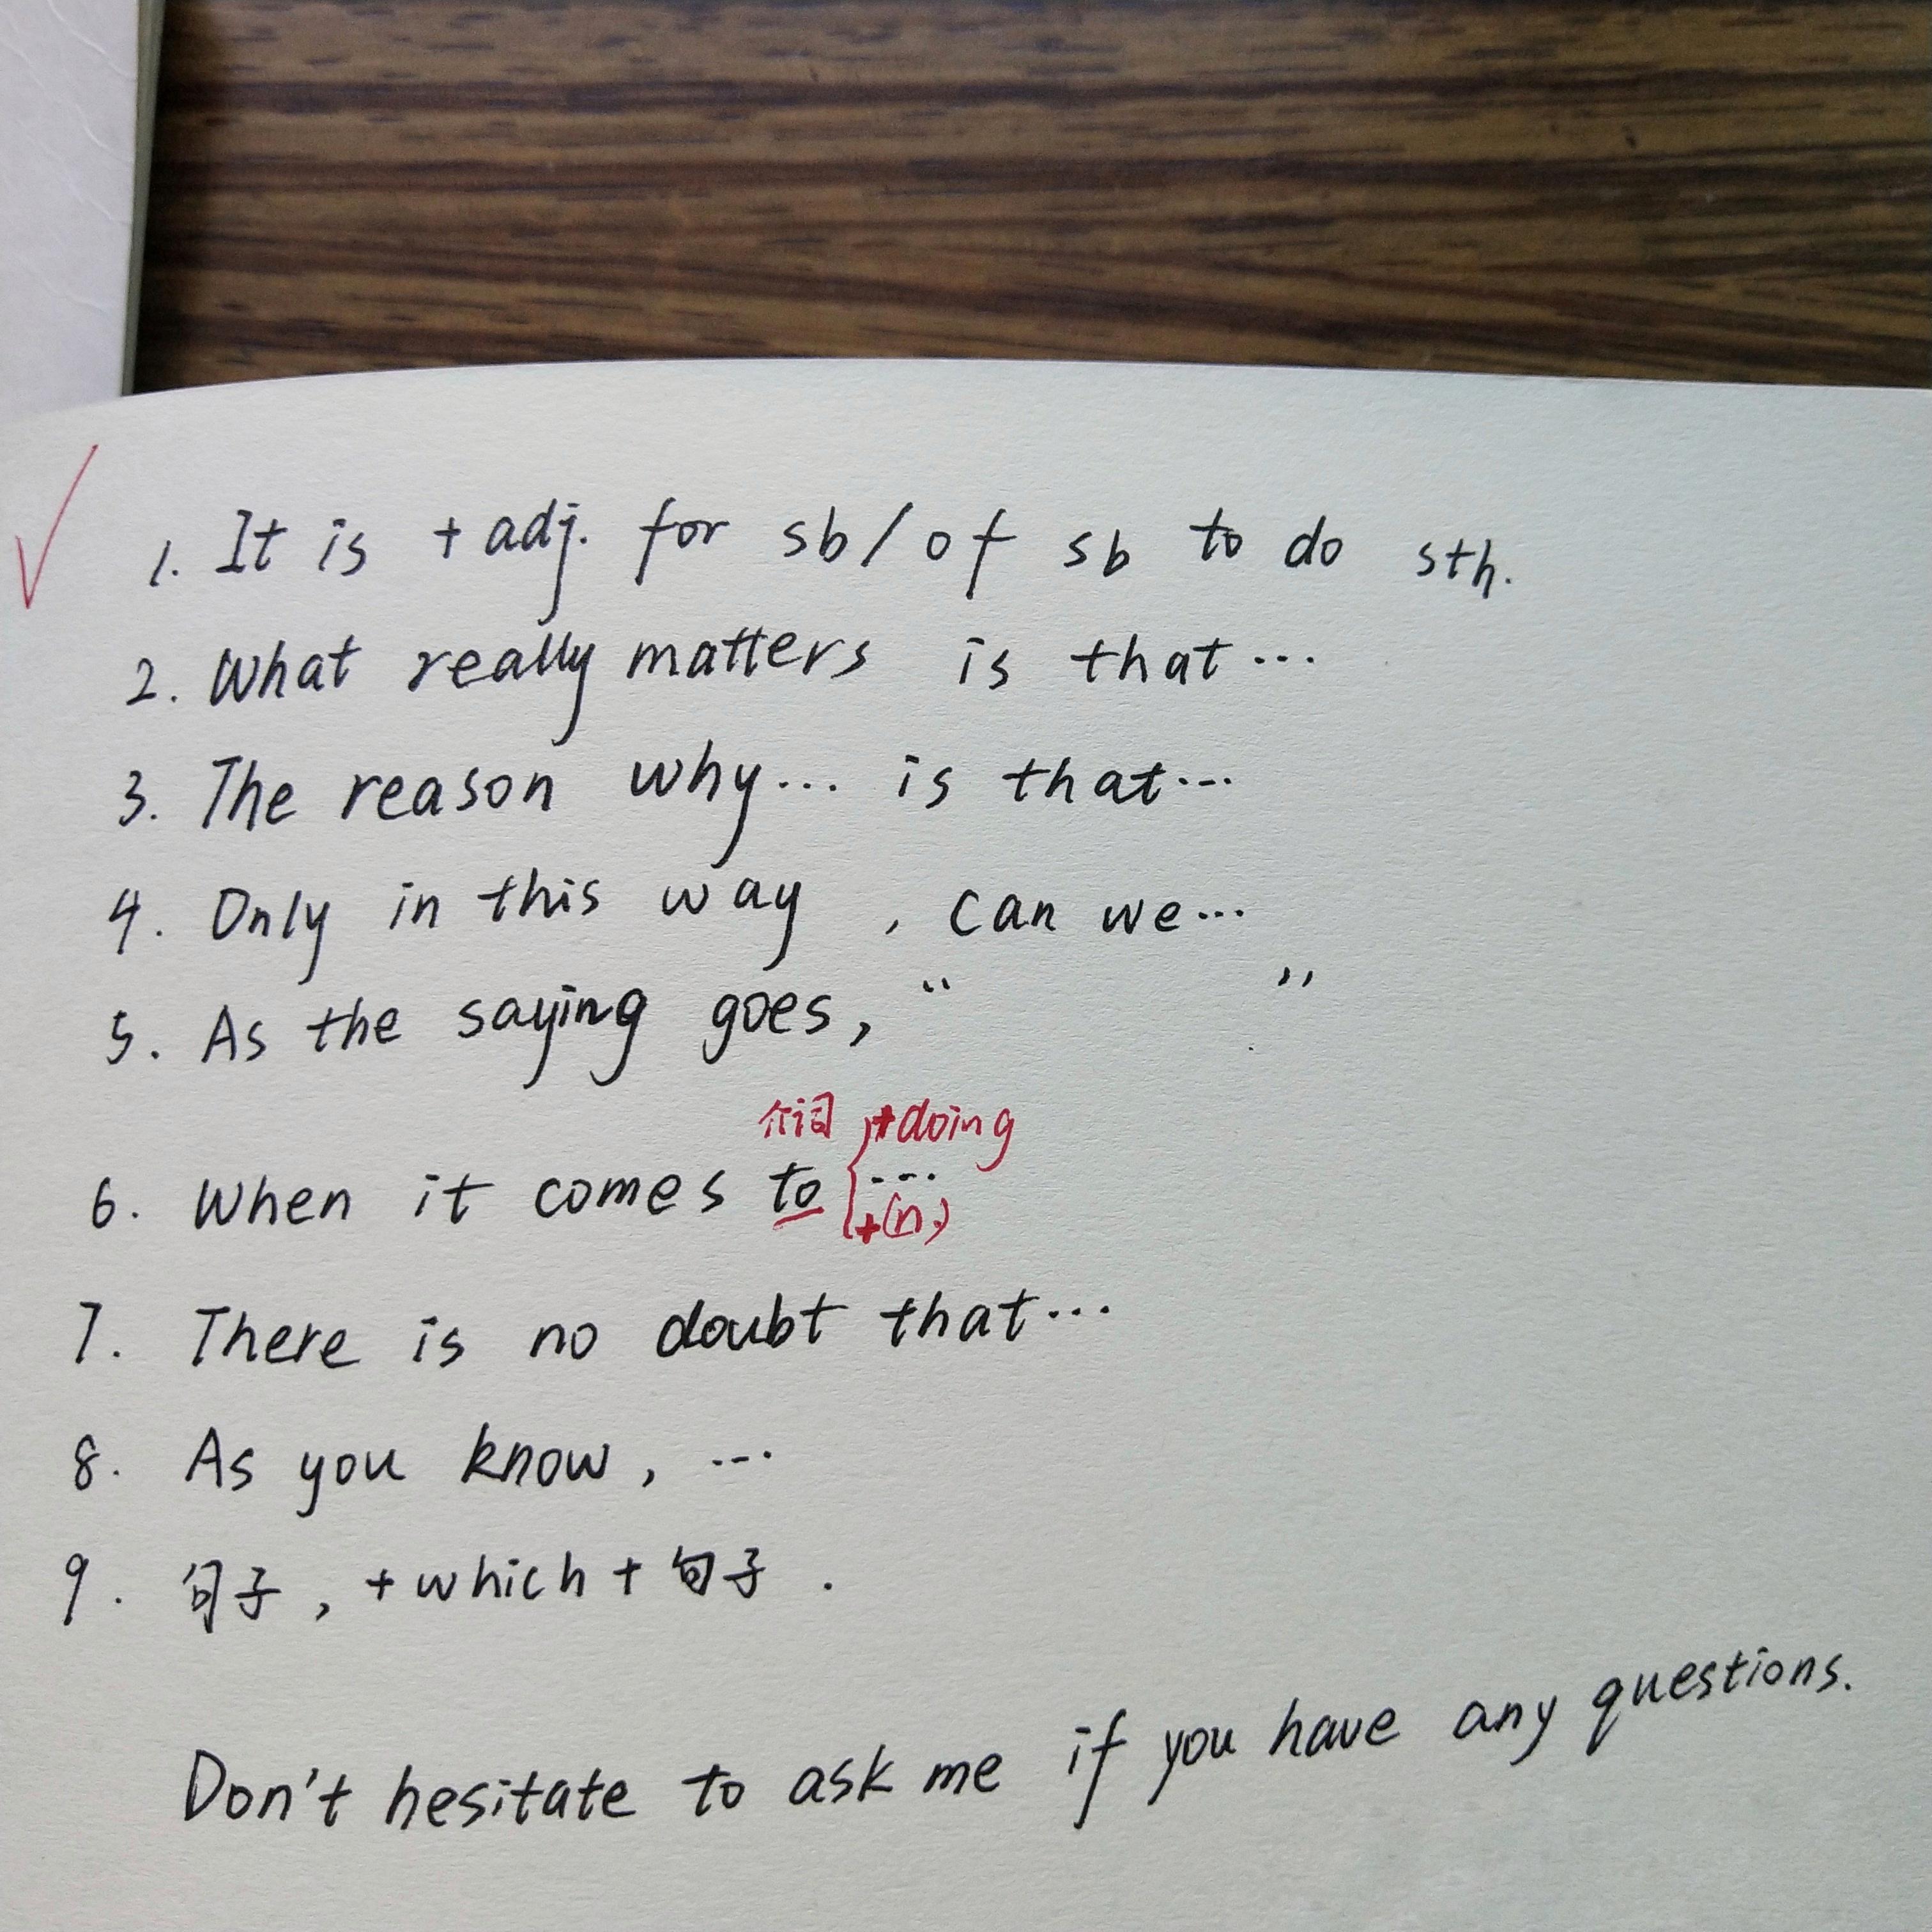 1. It is + adj. for sb/of sb to do sth.
2. What really matters is that...
3. The reason why... is that...
4. Only in this way, can we...
5. As the saying goes, “ ”
介词 +doing
6. When it comes to ...
+(n.)
7. There is no doubt that...
8. As you know, ...
9. 句子, +which+句子.
Don't hesitate to ask me if you have any questions.